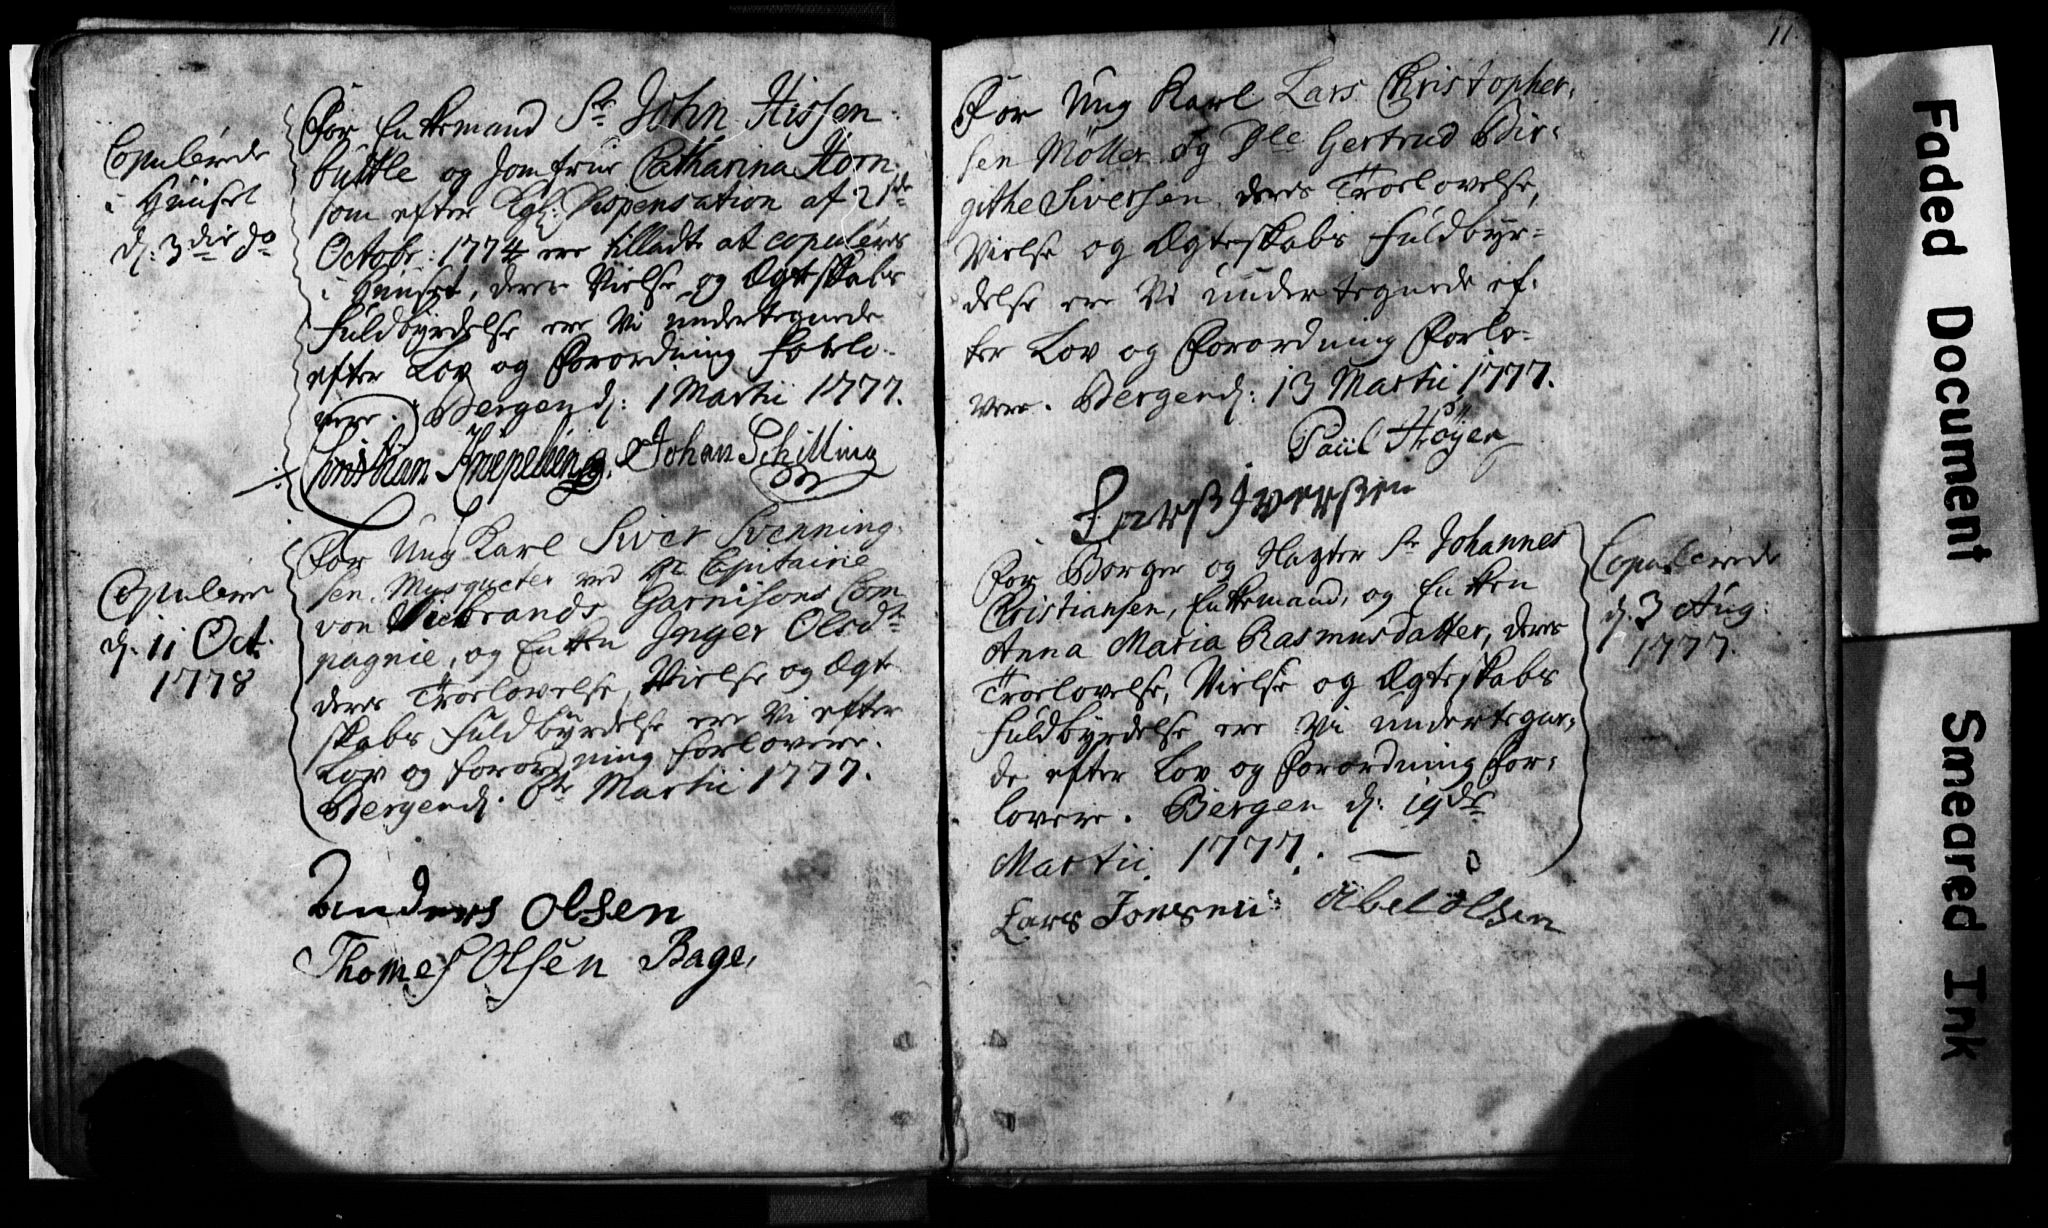 Copulerede
i Huuset
d: 3die do
For Enkemand Sr John Hissen-
büttle og Jomfrue Catharina Horn,
som efter Kgl: Dispensation af 21de
Octobr: 1774 ere tilladte at copuleres
i Huuset, deres Vielse og Ægteskabs
Fuldbyrdelse ere Vi undertegnede
efter Lov og Forordning Forlo-
vere. Bergen d: 1 Martii 1777.
Christian Krepelling. Johan Schilling
Copulerede
d: 11 Oct.
1778
For Ung Karl Siver Svenning-
sen, Musqueter ved Hr Capitaine
von Garnisons Com
pagnie, og Enken Inger Olsdtr
deres Troelovelse, Vielse og Ægte
skabs Fuldbyrdelse ere Vi efter
Lov og Forordning Forlovere.
Bergen d. Martii 1777.
Anders Olsen
Thomes Olsen Bage,
11
For Ung Karl Lars Christopher-
sen Möller og Dle Gertrud Bir-
githe Siversen deres Troelovelse,
Vielse og Ægteskabs Fuldbyr-
delse ere Vi undertegnede ef-
ter Lov og Forordning Forlo-
vere. Bergen d: 13 Martii 1777.
Paul Höyer
Lars Iversen
For Borger og Slagter Sr Johannes
Christiansen, Enkemand, og Enken
Anna Maria Rasmusdatter, deres
Troelovelse, Vielse og Ægteskabs
Fuldbyrdelse ere Vi undertegne-
de efter Lov og Forordning For-
lovere. Bergen d: 19de
Martii 1777.
Lars Jonsen Abel Olsen
Copulerede
d. 3 Aug:
1777.
Faded Document
Smeared Ink